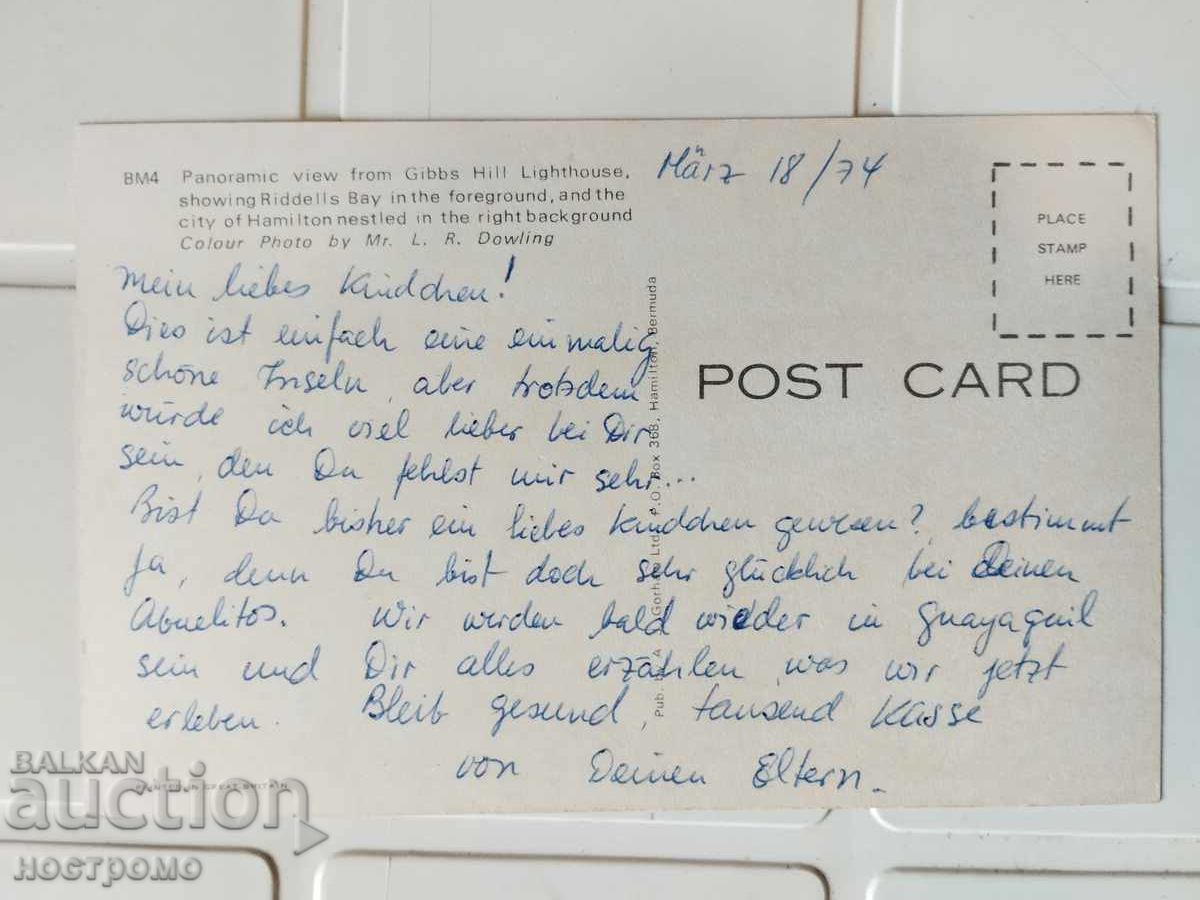 BM4 Panoramic view from Gibbs Hill Lighthouse,
showing Riddells Bay in the foreground, and the
city of Hamilton nestled in the right background
Colour Photo by Mr. L. R. Dowling
März 18/74
PLACE
STAMP
HERE
POST CARD
Mein liebes Kindchen!
Dies ist einfach eine einmalig
schöne Inseln, aber trotsdem
würde ich viel lieber bei Dir
sein, den Du fehlst mir sehr...
Bist Du bisher ein liebes Kindchen gewesen? bestimmt
Ja, denn Du bist doch sehr glücklich bei Deinen
Abuelitos. Wir werden bald wieder in Guayaquil
sein und Dir alles erzählen was wir jetzt
erleben. Bleib gesund, tausend Küsse
von Deinen Eltern.
Pub. by A. Gorham Ltd. P.O. Box 368, Hamilton, Bermuda
PRINTED IN GREAT BRITAIN
BALKAN
auction
НОСТРОМО